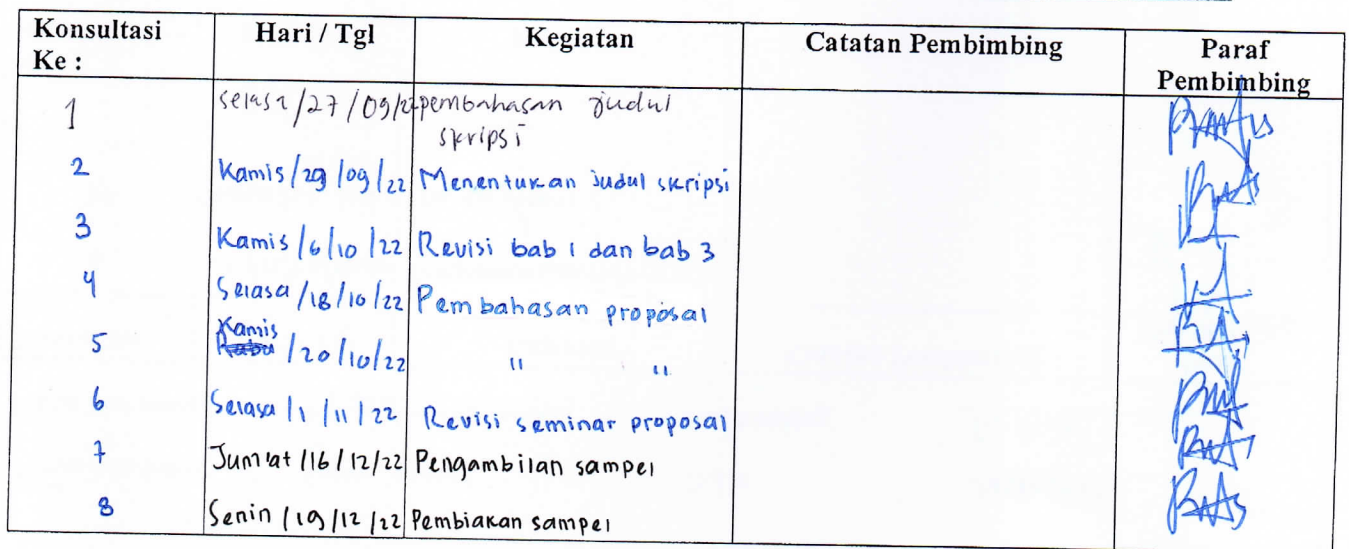 Konsultasi Ke : Hari / Tgl Kegiatan Catatan Pembimbing Paraf Pembimbing
1 selasa/27/09/22 pembahasan judul
skripsi
2 Kamis/29/09/22 Menentukan judul skripsi
3 Kamis/6/10/22 Revisi bab 1 dan bab 3
4 Selasa/18/10/22 Pembahasan proposal
Kamis
5 Rabu /20/10/22 " "
6 Selasa/1/11/22 Revisi seminar proposal
7 Jum'at/16/12/22 Pengambilan sampel
8 Senin/19/12/22 Pembiakan sampel